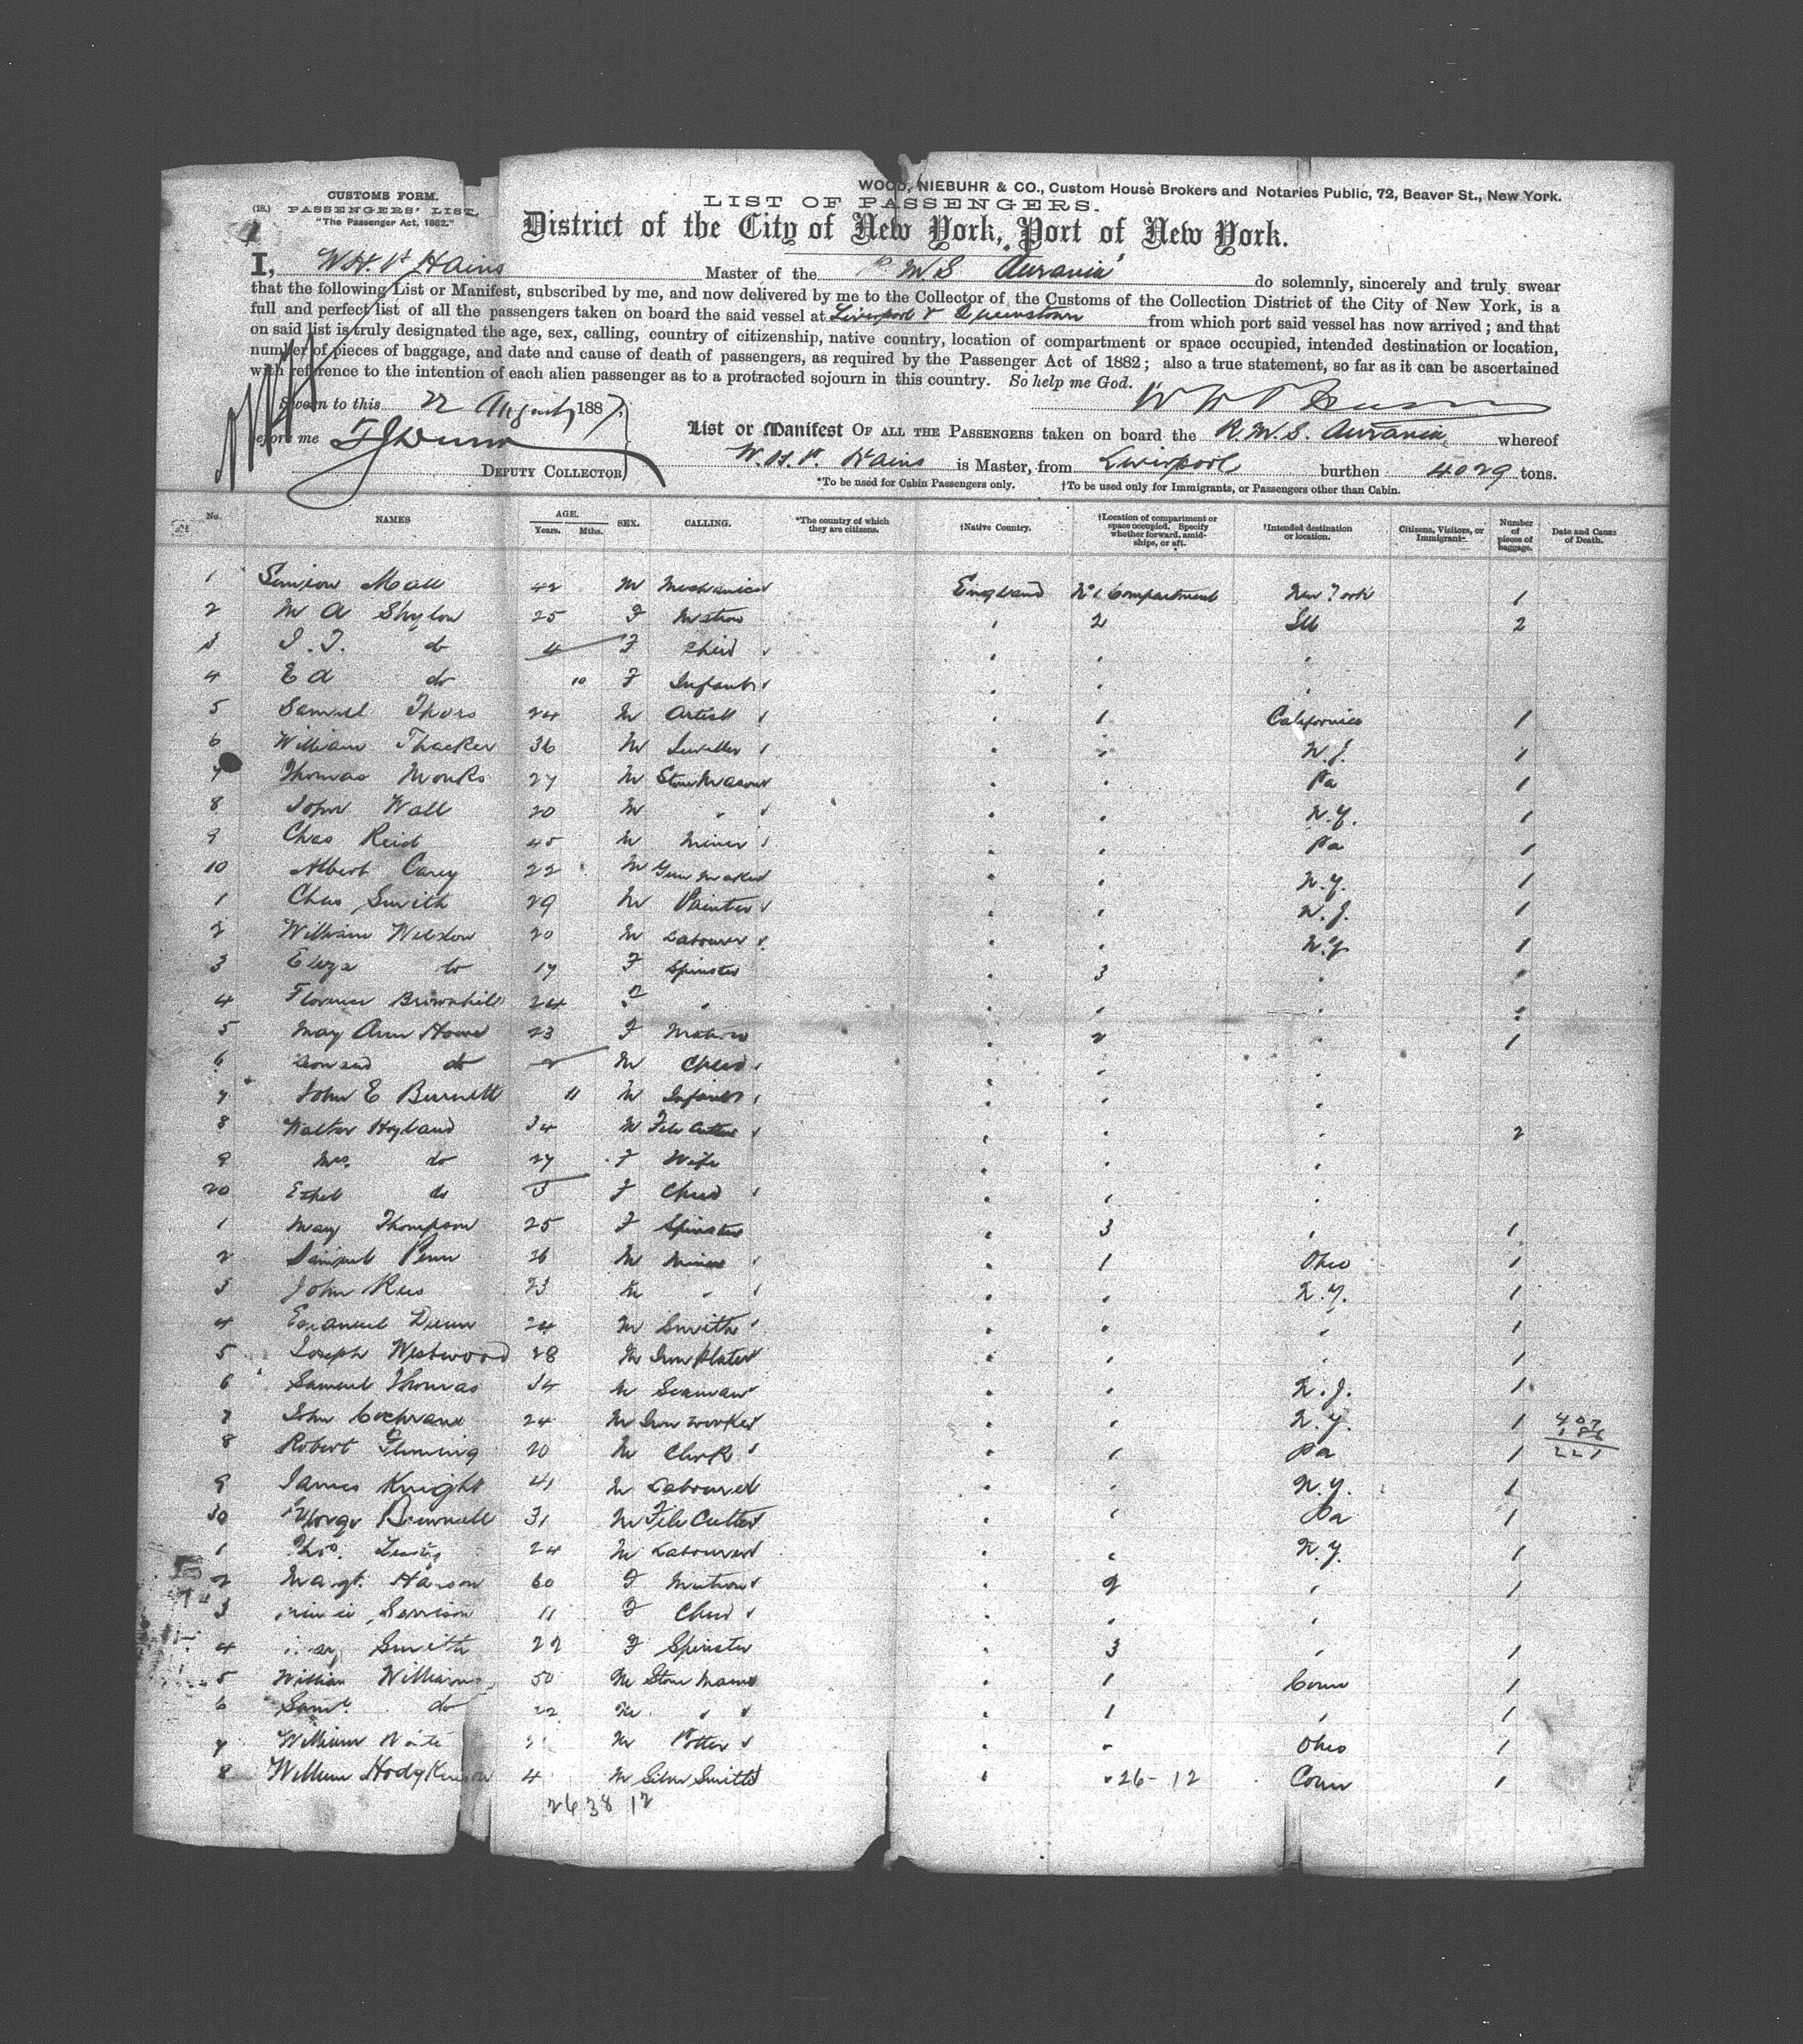 WOOD, NIEBUHR & CO., Custom House Brokers and Notaries Public, 72, Beaver St., New York.
CUSTOMS FORM.
(18.) PASSENGERS' LIST,
"The Passenger Act, 1882."
LIST OF PASSENGERS.
District of the City of New York, Port of New York.
I, W.H.P. Hains Master of the R.M.S Aurania do solemnly, sincerely and truly swear
that the following List or Manifest, subscribed by me, and now delivered by me to the Collector of the Customs of the Collection District of the City of New York, is a
full and perfect list of all the passengers taken on board the said vessel at Liverpool & Queenstown from which port said vessel has now arrived; and that
on said list is truly designated the age, sex, calling, country of citizenship, native country, location of compartment or space occupied, intended destination or location,
number of pieces of baggage, and date and cause of death of passengers, as required by the Passenger Act of 1882; also a true statement, so far as it can be ascertained
with reference to the intention of each alien passenger as to a protracted sojourn in this country. So help me God.
Sworn to this 22 August 1887
before me
DEPUTY COLLECTOR
List or Manifest OF ALL THE PASSENGERS taken on board the R.M.S. Aurania, whereof
W.H.P. Hains is Master, from Liverpool burthen 4029 tons.
*To be used for Cabin Passengers only. †To be used only for Immigrants, or Passengers other than Cabin.
No. NAMES AGE. Years. Mths. SEX. CALLING. *The country of which they are citizens. †Native Country. †Location of compartment or space occupied. Specify whether forward, amidships, or aft. †Intended destination or location. Citizens, Visitors, or Immigrants. Number of pieces of baggage. Date and Cause of Death.
1 42 M Mechanic England No 1 Compartment New York 1
2 M A 25 F Matron " 2 Ill 2
3 do 4 F Child " " "
4 E A do 10 F Infant " " "
5 Samuel 24 M Artist " 1 California 1
6 William Thacker 36 M Jeweller " " N.J. 1
7 Thomas Monks 27 M Stone Mason " " Pa 1
8 John Wall 20 M " " " N.Y. 1
9 Chas Reid 45 M Miner " " Pa 1
10 Albert Carey 22 M Gun Maker " " N.Y. 1
1 Chas Smith 29 M Painter " " N.J. 1
2 William 20 M Labourer " " N.Y. 1
3 Eliza do 19 F Spinster " 3 " "
4 Florence Brownhill 24 F " " " " "
5 Mary Ann 23 F Matron " 2 " 1
6 do 2 M Child " " "
7 John E Burnett 11 M Infant " " "
8 Walter Hoyland 34 M File Cutter " " " 2
9 Mrs. do 27 F Wife " " "
20 Ethel do 3 F Child " " "
1 Mary Thompson 25 F Spinster " 3 " 1
2 Samuel Penn 26 M Miner " 1 Ohio 1
3 John Rees 23 M " " " N.Y. 1
4 Emanuel Dunn 24 M Smith " " " 1
5 Joseph Westwood 28 M Iron Plater " " " 1
6 Samuel Thomas 34 M Seaman " " N.J. 1
7 John Cochrane 24 M Iron Worker " " N.Y. 1
8 Robert Fleming 20 M Clerk " " Pa 1
9 James Knight 41 M Labourer " " N.Y. 1
30 George 31 M File Cutter " " Pa 1
1 Thos. 24 M Labourer " " N.Y. 1
2 Margt. 60 F Matron " 2 " 1
3 11 F Child " " "
4 Smith 22 F Spinster " 3 " 1
5 William Williams 50 M Stone Mason " 1 Conn 1
6 Saml. do 22 M " " 1 " 1
7 William M Potter " " Ohio 1
8 William Hodgkinson 4 M Silver Smith " " 26-12 Conn 1
26 38 12